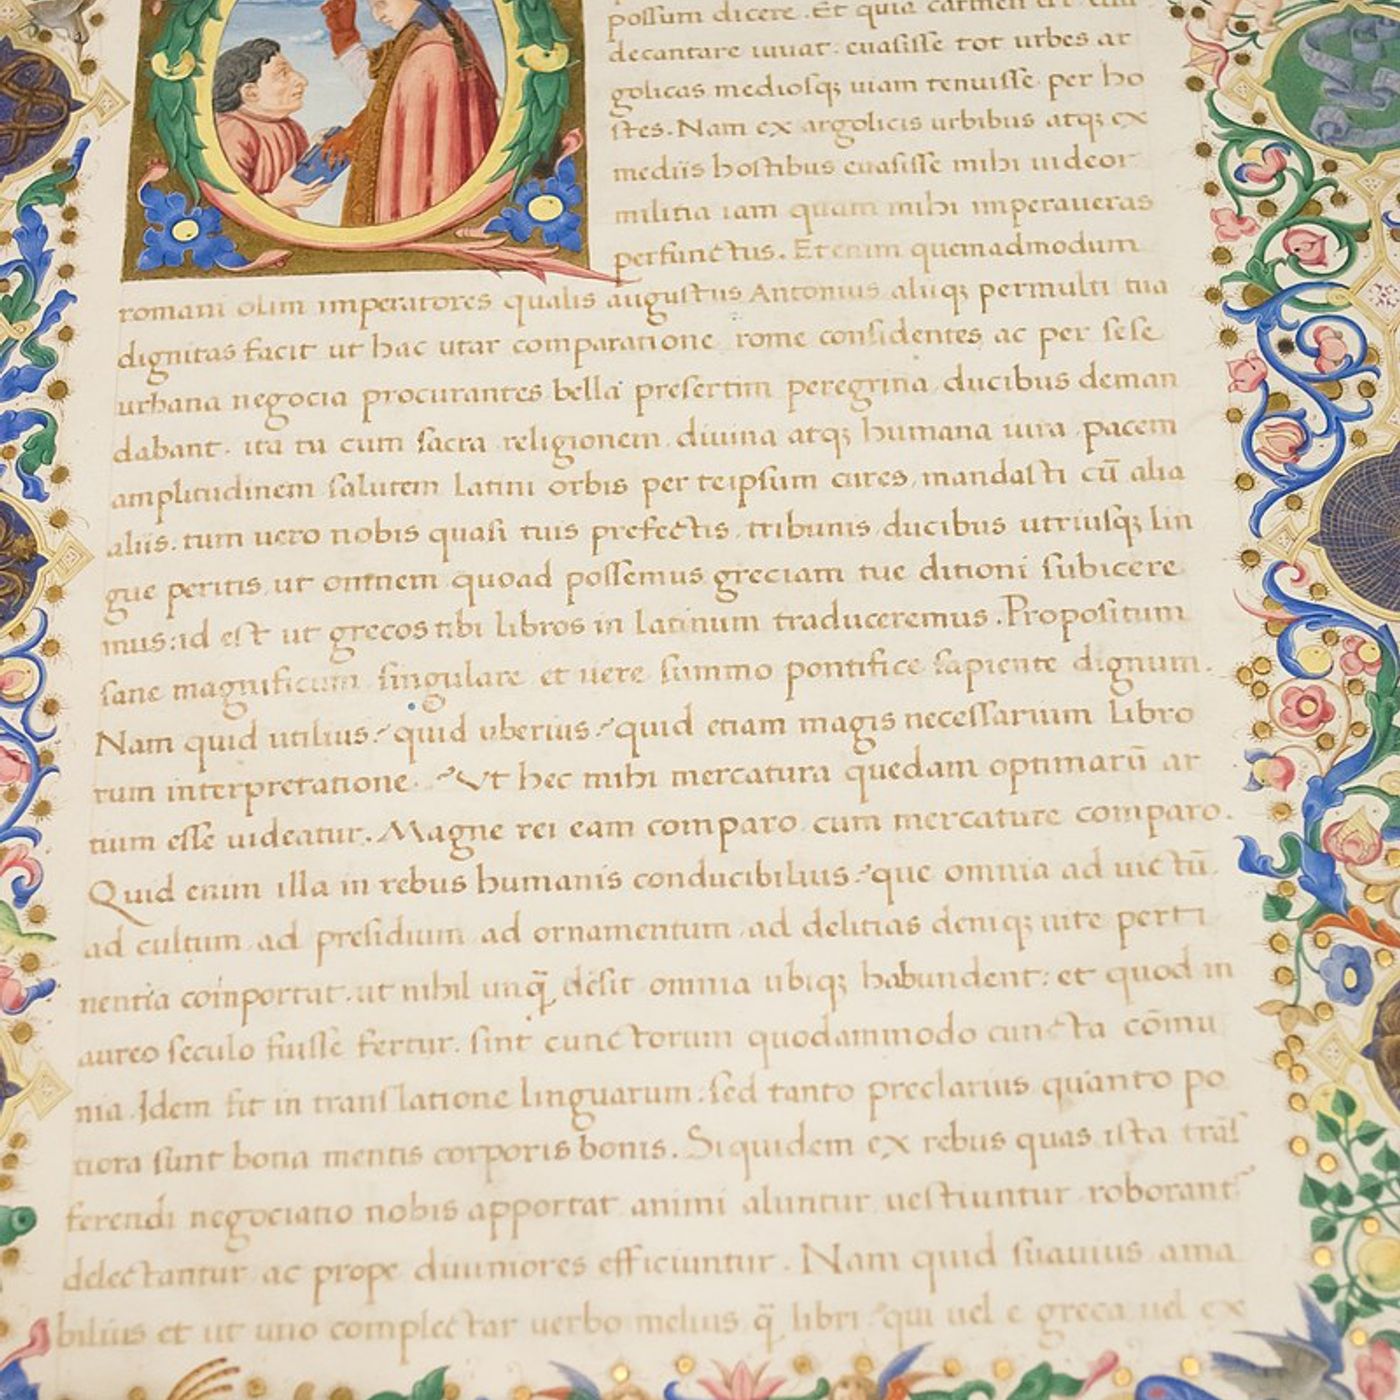 possum dicere. Et quia carmen
decantare iuuat. euasisse tot urbes ar
golicas mediosq; uiam tenuisse per ho
stes. Nam ex argolicis urbibus atq; ex
mediis hostibus euasisse mihi uideor
militia iam quam mihi imperaueras
perfunctus. Etenim quemadmodum
romani olim imperatores qualis augustus Antonius aliiq; permulti tua
dignitas facit ut hac utar comparatione rome considentes ac per sese
urbana negocia procurantes bella presertim peregrina ducibus deman
dabant. ita tu cum sacra religionem diuina atq; humana iura pacem
amplitudinem salutem latini orbis per teipsum cures, mandasti cū alia
aliis. tum uero nobis quasi tuis prefectis, tribunis, ducibus utriusq; lin
gue peritis, ut omnem quoad possemus greciam tue ditioni subicere
mus: id est ut grecos tibi libros in latinum traduceremus. Propositum
sane magnificum singulare et uere summo pontifice sapiente dignum.
Nam quid utilius? quid uberius? quid etiam magis necessarium libro
rum interpretatione? Vt hec mihi mercatura quedam optimarū ar
tium esse uideatur. Magne rei eam comparo cum mercature comparo.
Quid enim illa in rebus humanis conducibilius? que omnia ad uictū
ad cultum ad presidium ad ornamentum ad delitias deniq; uite perti
nentia comportat. ut nihil unq̄ desit omnia ubiq; habundent: et quod in
aureo seculo fuisse fertur. sint cunctorum quodammodo cuncta cōmu
nia. Idem fit in translatione linguarum: sed tanto preclarius quanto po
tiora sunt bona mentis corporis bonis. Siquidem ex rebus quas ista trāſ
ferendi negociatio nobis apportat animi aluntur uestiuntur roborant᷑
delectantur ac prope diuiniores efficiuntur. Nam quid suauius ama
bilius et ut uno complectar uerbo melius q̄ libri? qui uel e greca uel ex